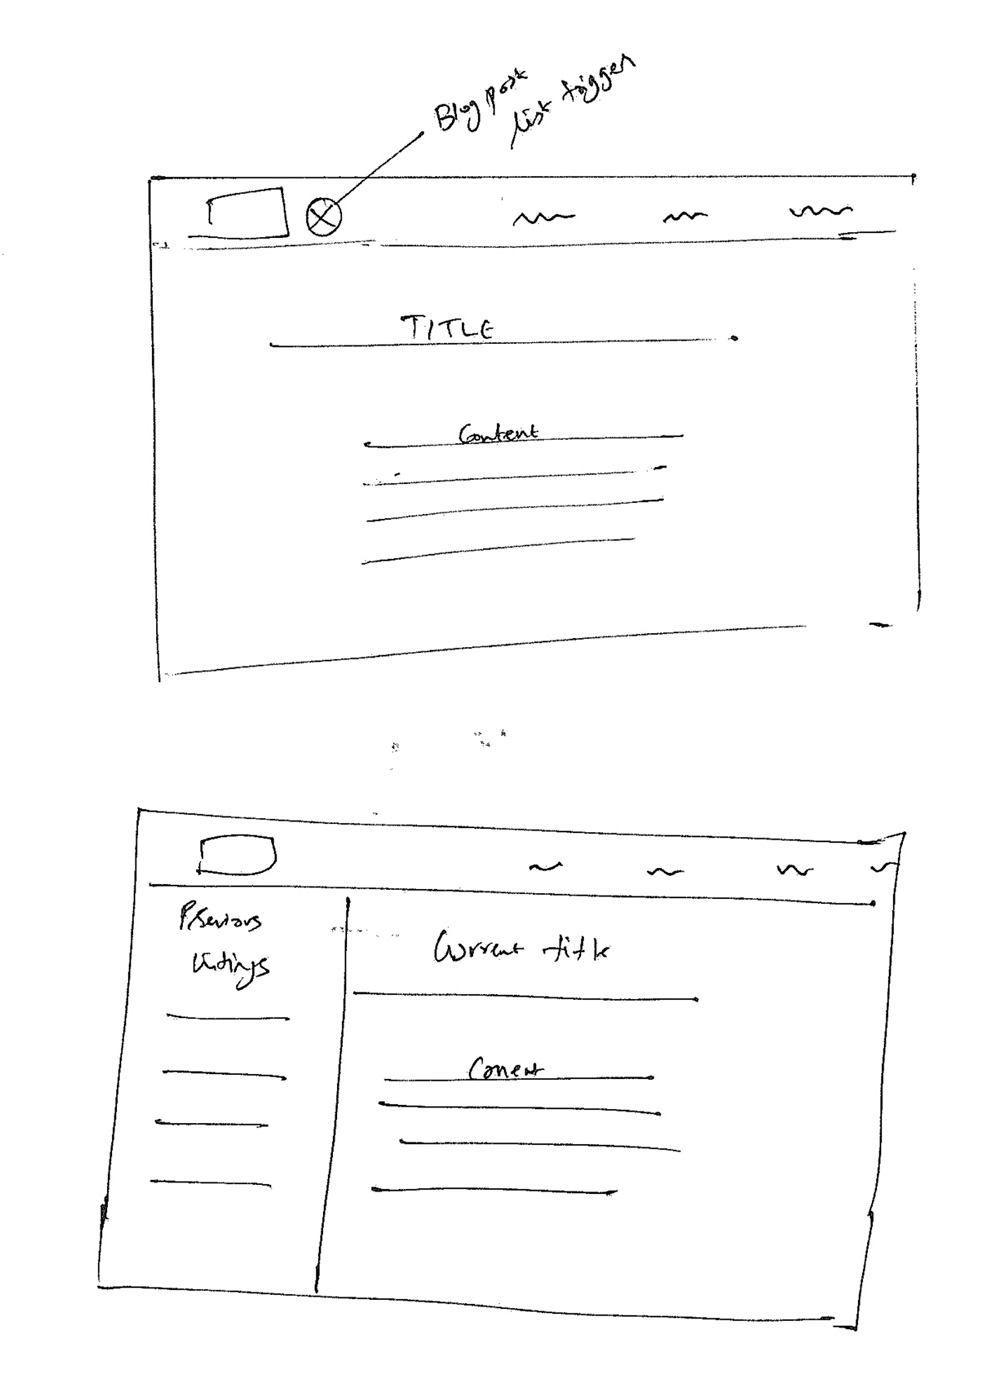 Blog post
list trigger
TITLE
Content
Previous
listings
Current title
Conent